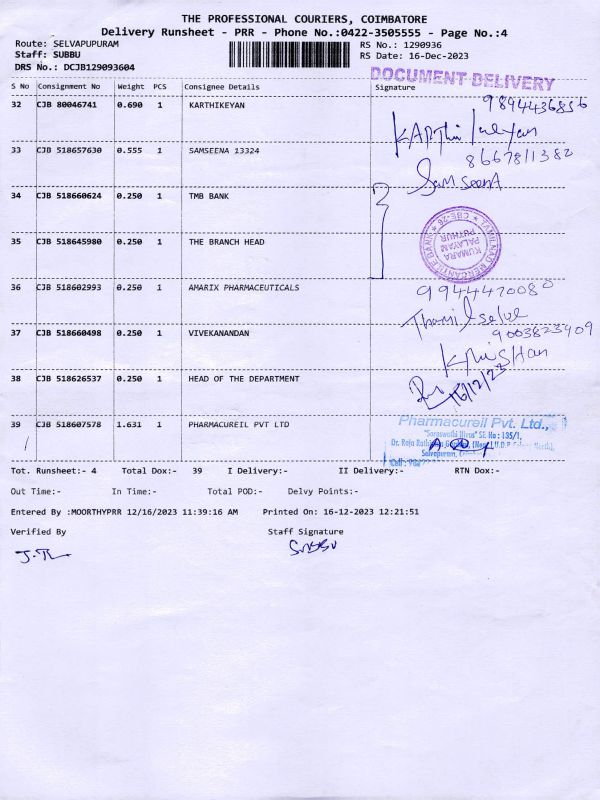 THE PROFESSIONAL COURIERS, COIMBATORE
Delivery Runsheet - PRR - Phone No.:0422-3505555 - Page No.:4
Route: SELVAPUPURAM
Staff: SUBBU
DRS No.: DCJB129093604
RS No.: 1290936
RS Date: 16-Dec-2023
DOCUMENT DELIVERY
S No Consignment No Weight PCS Consignee Details Signature
32 CJB 80046741 0.690 1 KARTHIKEYAN
9894436856
KARThikeyan
33 CJB 518657630 0.555 1 SAMSEENA 13324
8667811382
SamseenA
34 CJB 518660624 0.250 1 TMB BANK
35 CJB 518645980 0.250 1 THE BRANCH HEAD
TAMILNAD MERCANTILE BANK * CBE-26 *
KUMARA
PALAYAM
PUTHUR
36 CJB 518602993 0.250 1 AMARIX PHARMACEUTICALS
9944420080
Thamil selve
37 CJB 518660498 0.250 1 VIVEKANANDAN
9003823409
KRiSHan
38 CJB 518626537 0.250 1 HEAD OF THE DEPARTMENT
16/12/23
39 CJB 518607578 1.631 1 PHARMACUREIL PVT LTD
Pharmacureil Pvt. Ltd.,
"Saraswathi Illvus" SF. No : 135/1,
Selvapuram,
Cell :
Tot. Runsheet:- 4 Total Dox:- 39 I Delivery:- II Delivery:- RTN Dox:-
Out Time:- In Time:- Total POD:- Delvy Points:-
Entered By :MOORTHYPRR 12/16/2023 11:39:16 AM Printed On: 16-12-2023 12:21:51
Verified By Staff Signature
SUBBU